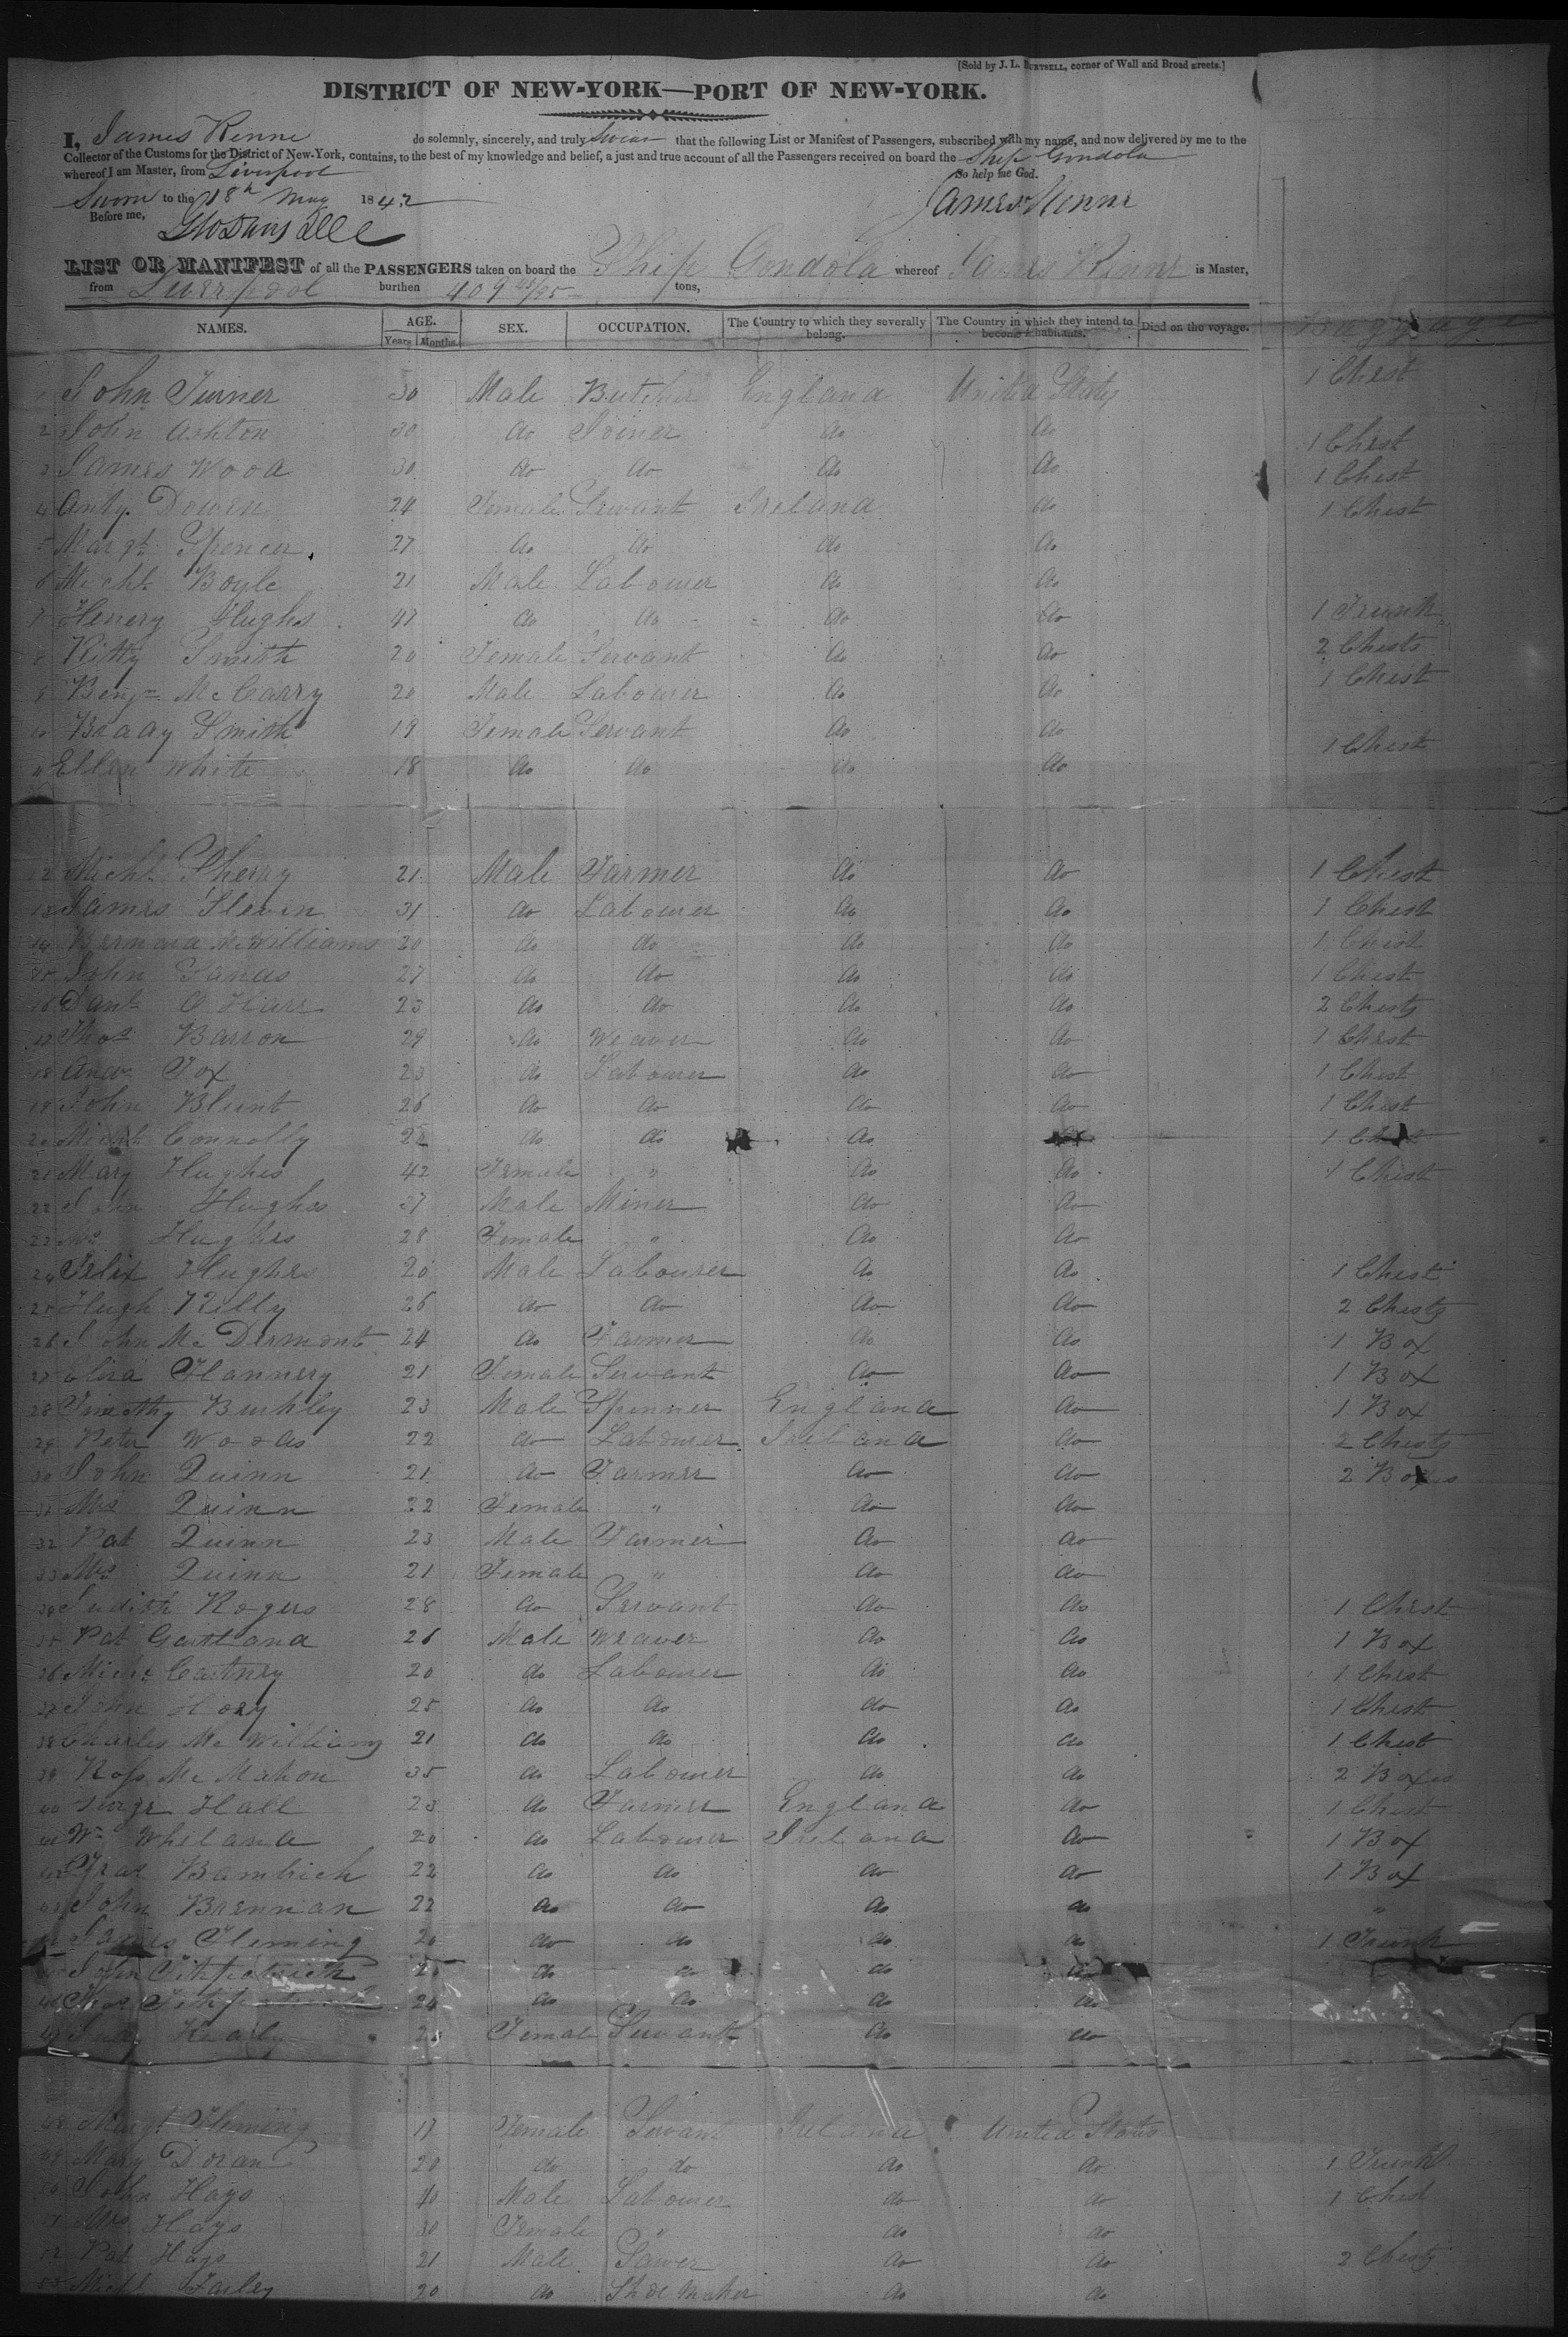 [Sold by J. L. BURTSELL, corner of Wall and Broad streets.]
DISTRICT OF NEW-YORK—PORT OF NEW-YORK.
I, James Renne do solemnly, sincerely, and truly Swear that the following List or Manifest of Passengers, subscribed with my name, and now delivered by me to the
Collector of the Customs for the District of New-York, contains, to the best of my knowledge and belief, a just and true account of all the Passengers received on board the Ship Gondola
whereof I am Master, from Liverpool So help me God.
Sworn to the 18th May 1842 James Renne
Before me,
LIST OR MANIFEST of all the PASSENGERS taken on board the Ship Gondola whereof James Renne is Master,
from Liverpool burthen 409 tons,
NAMES. AGE. Years Months. SEX. OCCUPATION. The Country to which they severally belong. The Country in which they intend to become inhabitants. Died on the voyage. Baggage
1 John Turner 30 Male Butcher England United States 1 Chest
2 John Ashton 30 do Joiner do do 1 Chest
3 James Wood 30 do do do do 1 Chest
4 Anty. Dowen 24 Female Servant Ireland do 1 Chest
5 Margt. Spencer 27 do do do do
6 Michl. Boyle 21 Male Labourer do do
7 Henery Hughs 47 do do do do 1 Trunk
8 Kitty Smith 20 Female Servant do do 2 Chests
9 Benjn. McCaary 20 Male Labourer do do 1 Chest
10 Braay Smith 19 Female Servant do do
11 Ellen White 18 do do do do 1 Chest
12 Michl. Sherry 21 Male Farmer do do 1 Chest
13 James Slevin 31 do Labourer do do 1 Chest
14 Bernard McWilliams 20 do do do do 1 Chest
15 John 27 do do do do 1 Chest
16 Danl. O Hare 23 do do do do 2 Chests
17 Thos. Barron 29 do Weaver do do 1 Chest
18 Andw. Fox 23 do Labourer do do 1 Chest
19 John Blunt 26 do do do do 1 Chest
20 Michl. Connolly 22 do do do 1 Chest
21 Mary Hughes 42 Female " do do 1 Chest
22 John Hughes 37 Male Miner do do
23 Mrs Hughes 28 Female " do do
24 Felix Hughes 20 Male Labourer do do 1 Chest
25 Hugh Killy 26 do do do do 2 Chests
26 John McDermont 24 do Farmer do do 1 Box
27 Eliza Flannery 21 Female Servant do do 1 Box
28 Timothy Burkley 23 Male Spinner England do 1 Box
29 Peter Woods 22 do Labourer Ireland do 2 Chests
30 John Quinn 21 do Farmer do do 2 Boxes
31 Mrs Quinn 22 Female " do do
32 Pat Quinn 23 Male Farmer do do
33 Mrs Quinn 21 Female " do do
34 Judith Rogers 28 do Servant do do 1 Chest
35 Pat Gartland 26 Male Weaver do do 1 Box
36 Michl. Cartney 20 do Labourer do do 1 Chest
37 John Hoey 25 do do do do 1 Chest
38 Charles McWilliams 21 do do do do 1 Chest
39 Ross McMahon 35 do Labourer do do 2 Boxes
40 Hall 23 do Farmer England do 1 Chest
41 Wm. Wheland 20 do Labourer Ireland do 1 Box
42 Fras Bambrick 22 do do do do 1 Box
43 John Brennan 22 do do do do "
44 James Fleming 20 do do do do 1 Trunk
45 John Fitzpatrick 25 do do do do
46 Thos Fitzpatrick 24 do do do do
47 Judy Female Servant do do
48 Margt Fleming 17 Female Servant Ireland United States
49 Mary Doran 20 do do do do 1 Trunk
50 John Hays 40 Male Labourer do do 1 Chest
51 Mrs Hays 30 Female " do do
52 Pat Hays 21 Male Sawer do do 2 Chests
53 Michl Farley 20 do Shoe Maker do do